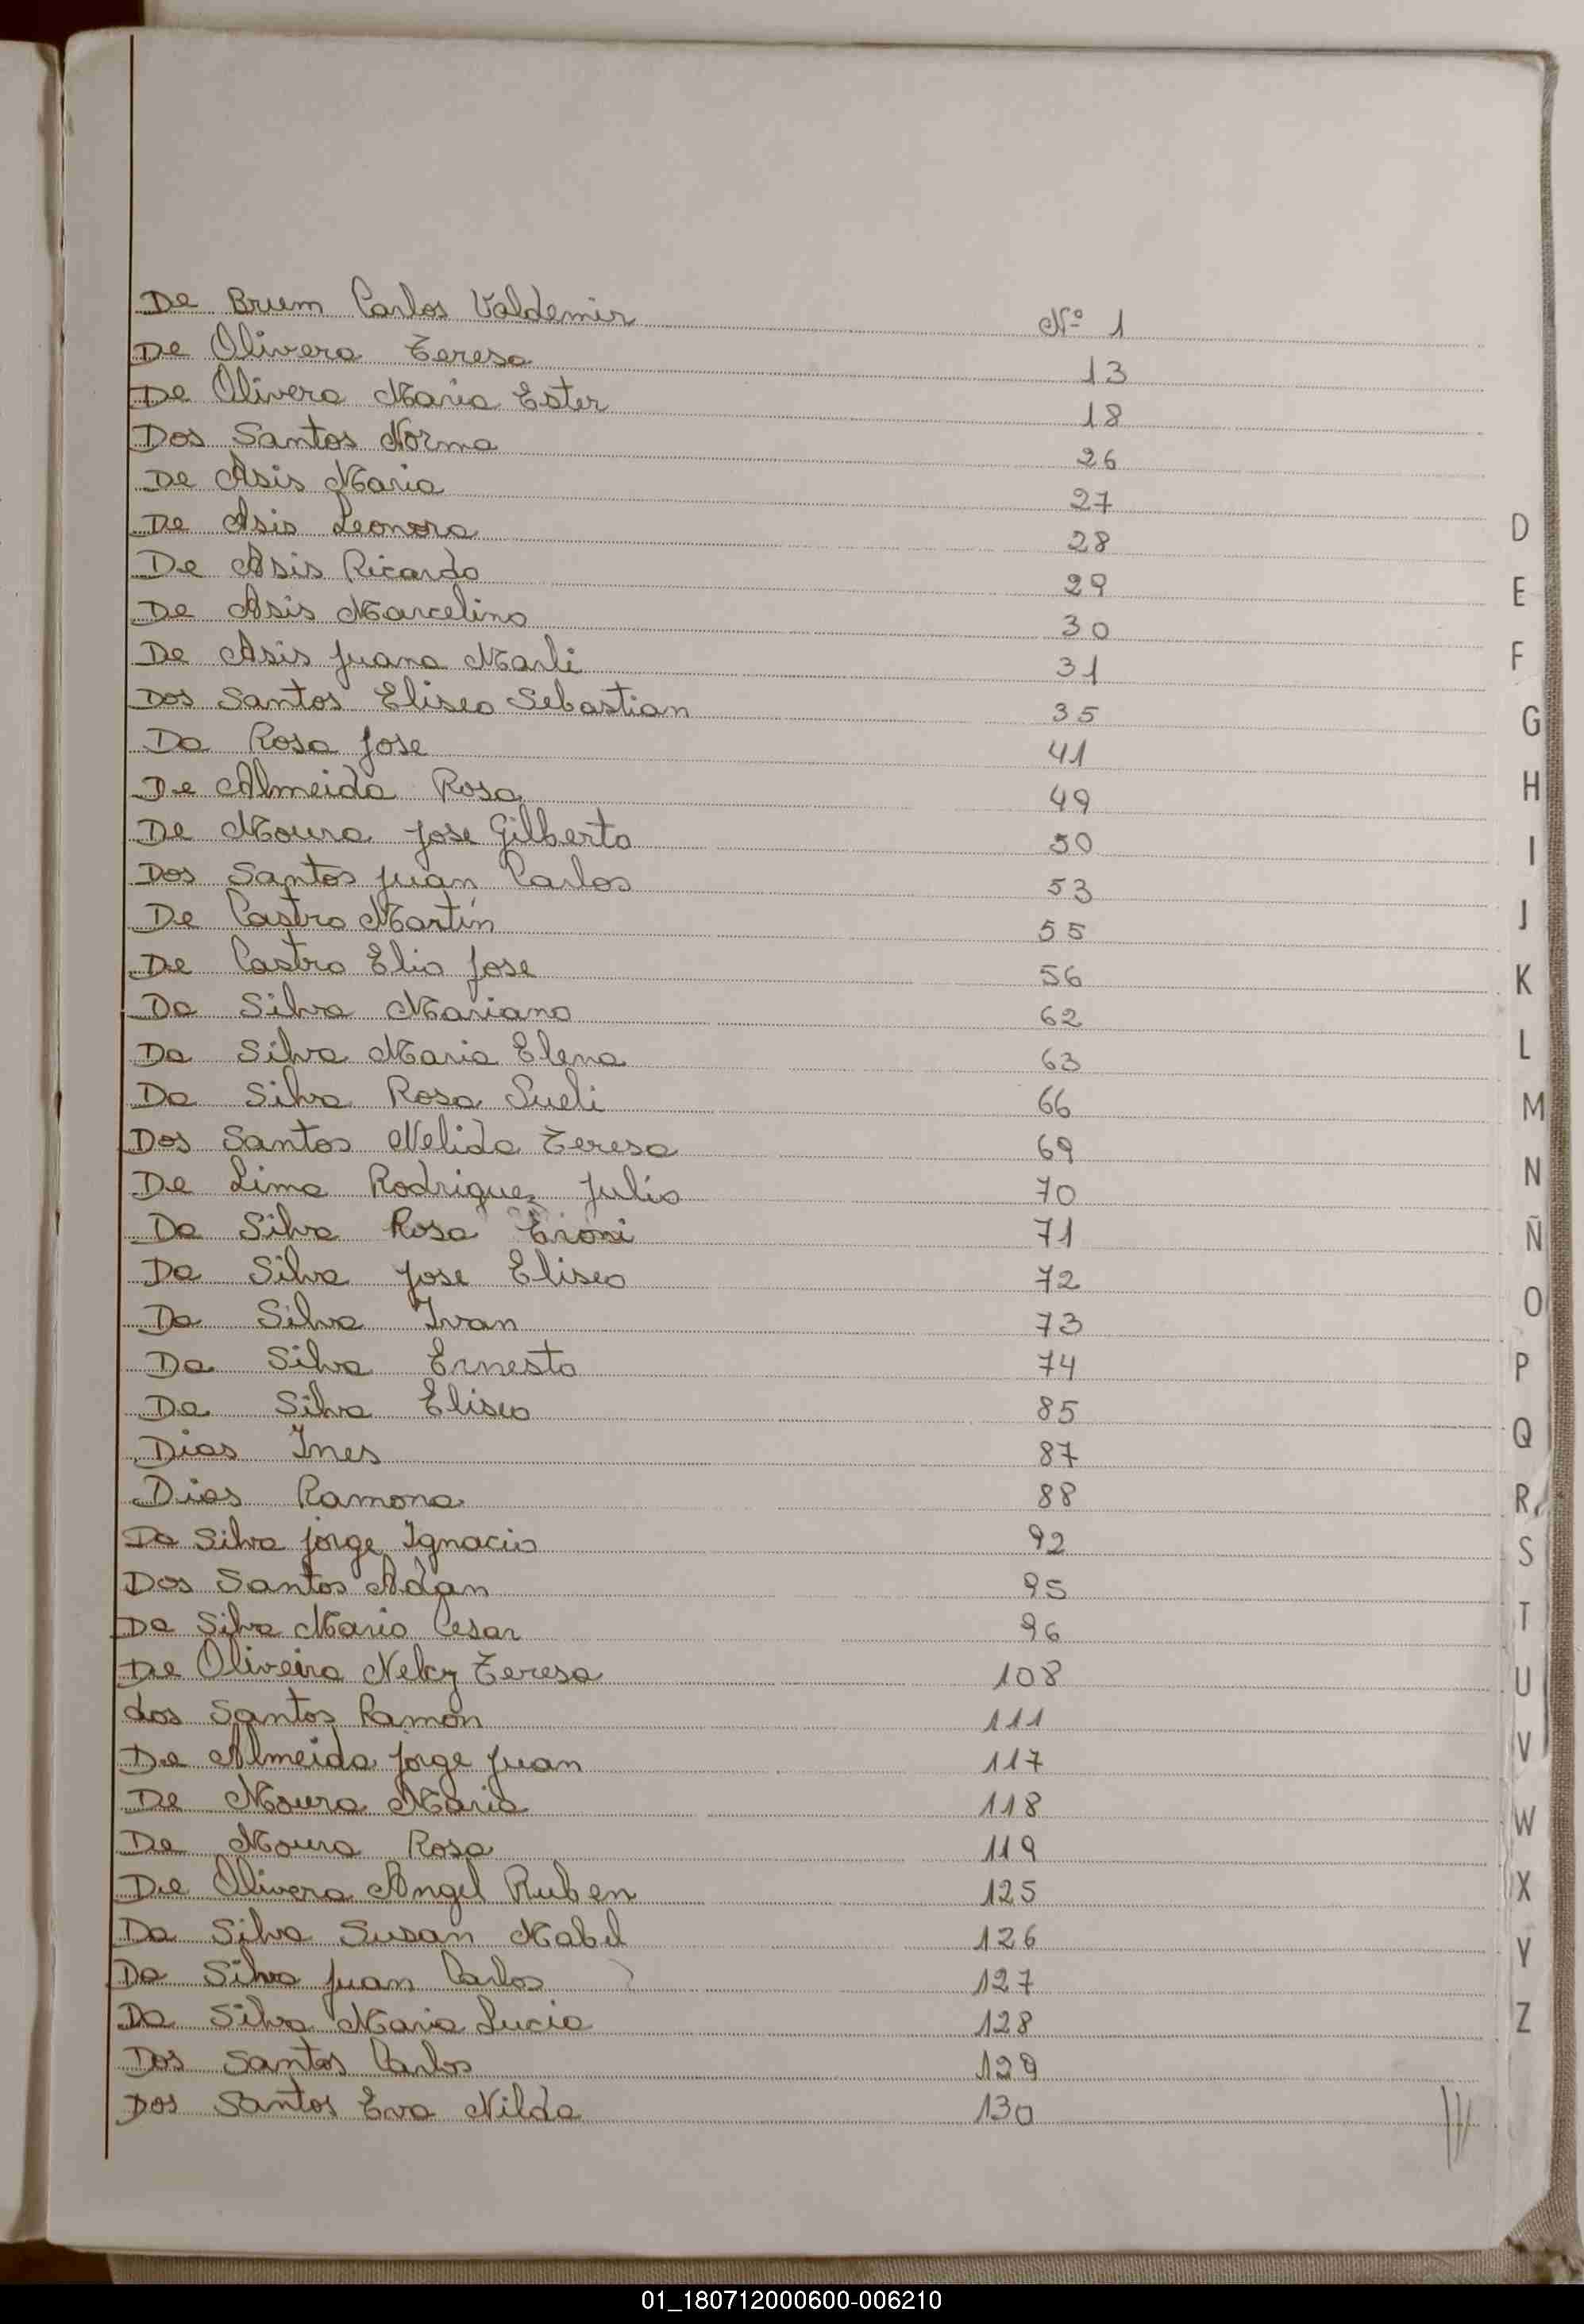 De Brum Carlos Valdemir Nº 1
De Olivera Teresa 13
De Olivera Maria Ester 18
Dos Santos Norma 26
De Asis Maria 27
De Asis Leonora 28
De Asis Ricardo 29
De Asis Marcelino 30
De Asis Juana Marli 31
Dos Santos Eliseo Sebastian 35
Da Rosa Jose 41
De Almeida Rosa 49
De Moura Jose Gilberto 50
Dos Santos Juan Carlos 53
De Castro Martín 55
De Castro Elio Jose 56
Da Silva Mariano 62
Da Silva Maria Elena 63
Da Silva Rosa Sueli 66
Dos Santos Nelida Teresa 69
De Lima Rodriguez Julio 70
Da Silva Rosa Eroni 71
Da Silva Jose Eliseo 72
Da Silva Ivan 73
Da Silva Ernesto 74
Da Silva Eliseo 85
Dias Ines 87
Dias Ramona 88
Da Silva Jorge Ignacio 92
Dos Santos Adan 95
Da Silva Mario Cesar 96
De Oliveira Nelcy Teresa 108
dos Santos Ramón 111
De Almeida Jorge Juan 117
De Moura Maria 118
De Moura Rosa 119
De Olivera Angel Ruben 125
Da Silva Susan Mabel 126
Da Silva Juan Carlos 127
Da Silva Maria Lucia 128
Dos Santos Carlos 129
Dos Santos Eva Nilda 130
D
E
F
G
H
I
J
K
L
M
N
Ñ
O
P
Q
R
S
T
U
V
W
X
Y
Z
01_180712000600-006210